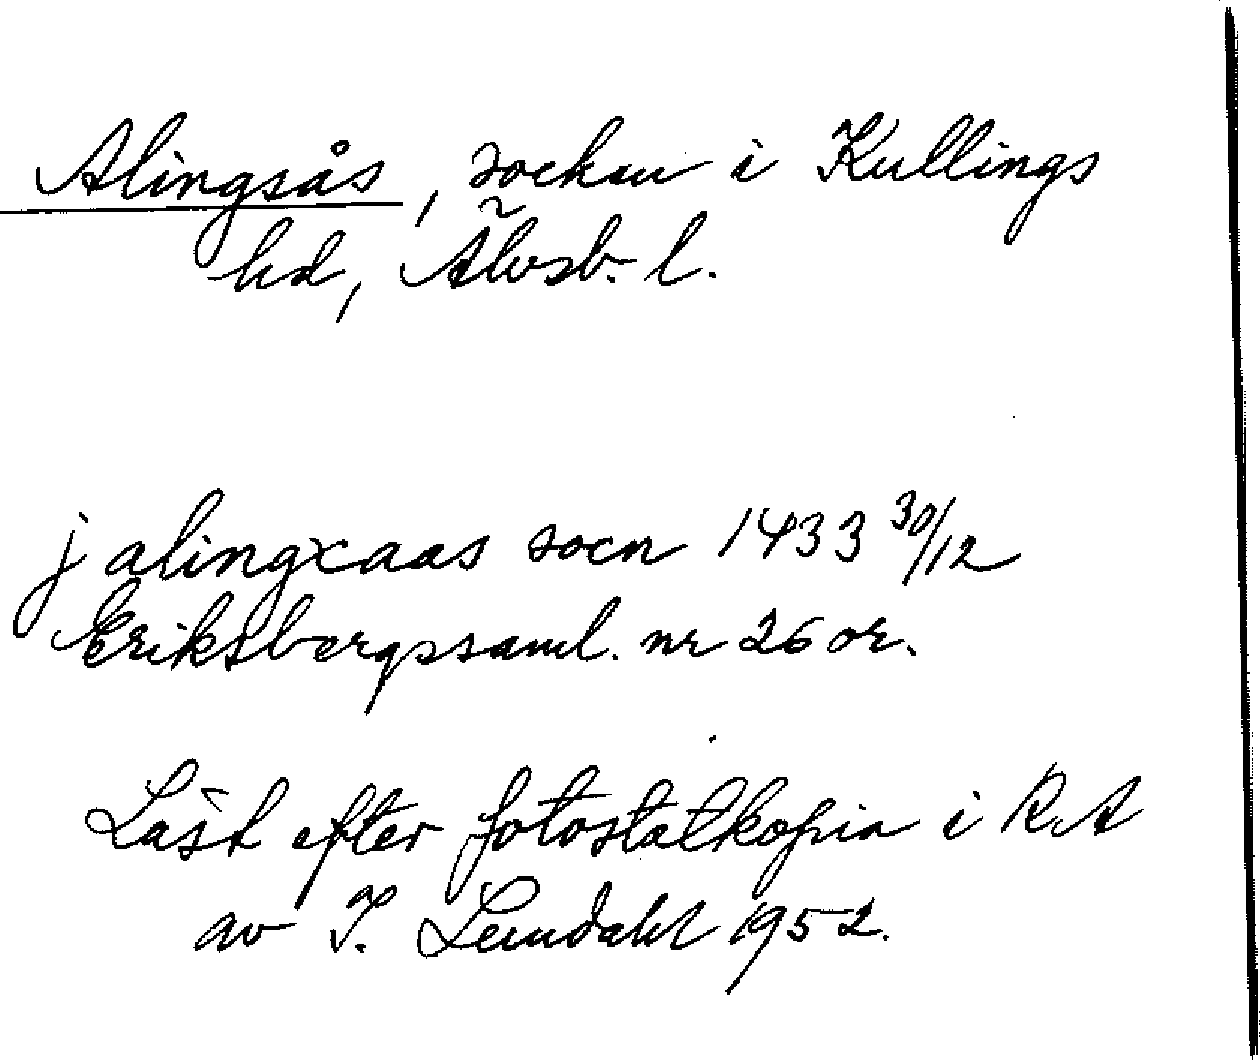 Alingsås, socken i Kullings
hd, Älvsb. l.
j alingxaas socn 1433 30/12
Eriksbergssaml. nr 26 or.
Läst efter fotostatkopia i RA
av I. Lundahl 1952.